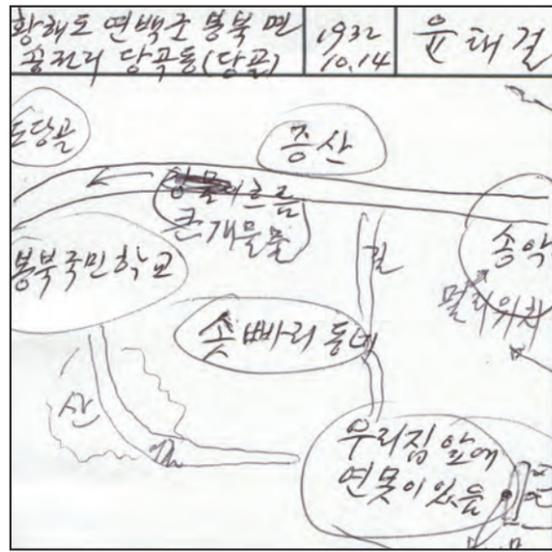 황해도 연백군 봉북면
송전리 당곡동(당골)
1932
10.14
윤태걸
도당골
증산
강물이흐름
큰개울물
봉북국민학교
길
송악
멀리위치
솟빠리동네
산
길
우리집앞에
연못이있음